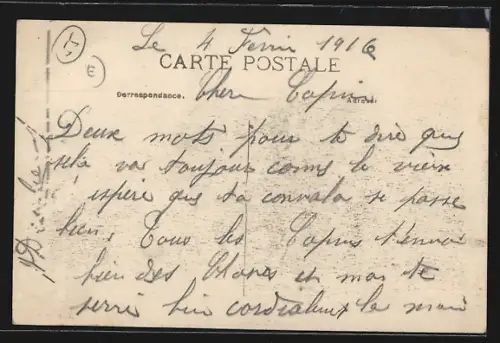 Le 4 Fevrier 1916
CARTE POSTALE
Correspondance. Adresse.
Cher Copin
Deux mots pour te dire que
sela va toujour comme le vieux
espere que ta convala se passe
bien, Tous les Copins t'envoi
bien des choses et moi te
serre bien cordialemt la main
E